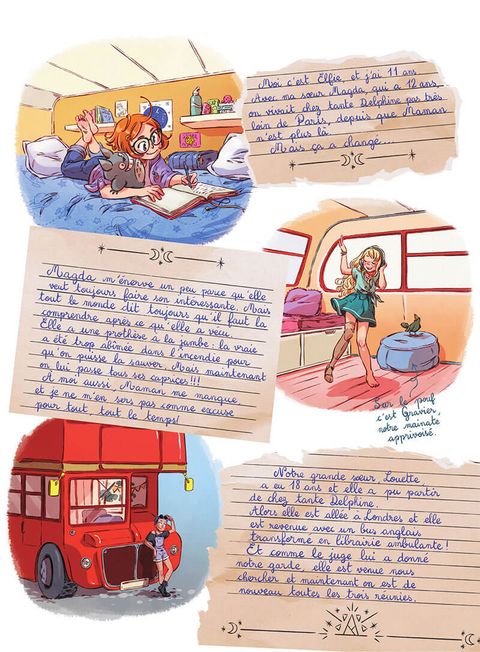 Moi c'est Elfie, et j'ai 11 ans
Avec ma sœur Magda, qui a 12 ans,
on vivait chez tante Delphine pas très
loin de Paris, depuis que Maman
n'est plus là.
Mais ça a changé...
Magda m'énerve un peu parce qu'elle
veut toujours faire son intéressante. Mais
tout le monde dit toujours qu'il faut la
comprendre après ce qu'elle a vécu.
Elle a une prothèse à la jambe : la vraie
a été trop abîmée dans l'incendie pour
qu'on puisse la sauver. Mais maintenant
on lui passe tous ses caprices!!!
À moi aussi, Maman me manque
et je ne m'en sers pas comme excuse
pour tout, tout le temps!
Sur le pouf
c'est Gravier,
notre mainate
apprivoisé.
Notre grande sœur Louette
a eu 18 ans et elle a pu partir
de chez tante Delphine.
Alors elle est allée à Londres et elle
est revenue avec un bus anglais
transformé en librairie ambulante!
Et comme le juge lui a donné
notre garde, elle est venue nous
chercher et maintenant on est de
nouveau toutes les trois réunies.